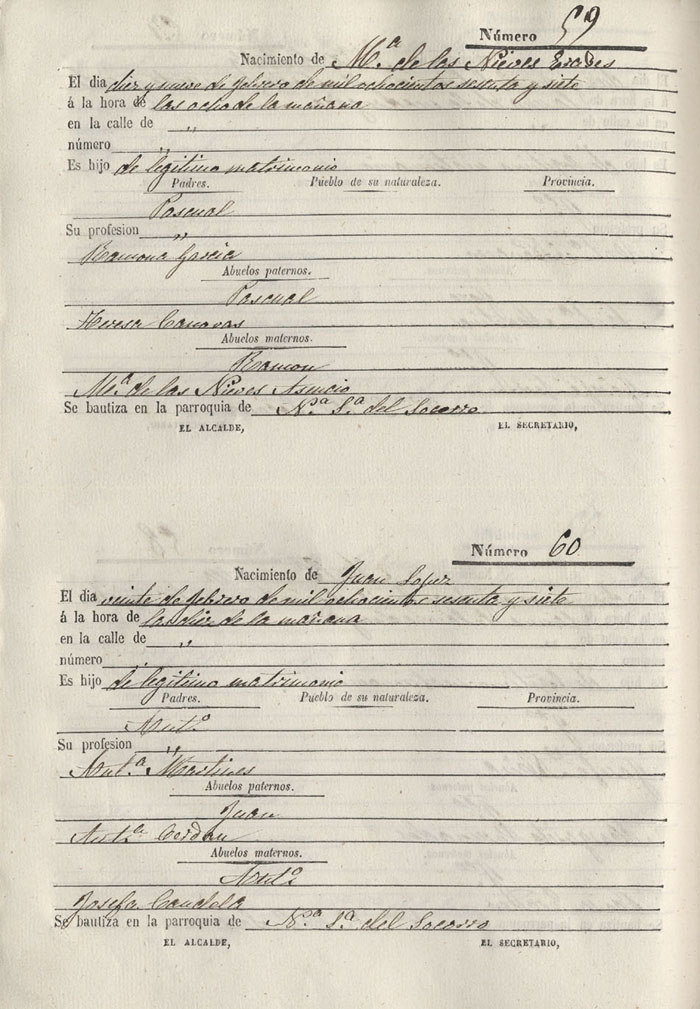 Número 59
Nacimiento de Mª de las Nieves Erades
El dia diez y nueve de febrero de mil ochocientos sesenta y siete
á la hora de las ocho de la mañana
en la calle de „
número „
Es hijo de legitimo matrimonio
Padres. Pueblo de su naturaleza. Provincia.
Pascual
Su profesion „
Ramona Garcia
Abuelos paternos.
Pascual
Teresa Canovas
Abuelos maternos.
Ramon
Mª de las Nieves Asencio
Se bautiza en la parroquia de Nª Sª del Socorro
EL ALCALDE, EL SECRETARIO,
Número 60
Nacimiento de Juan Lopez
El dia veinte de febrero de mil ochocientos sesenta y siete
á la hora de las diez de la mañana
en la calle de „
número „
Es hijo de legitimo matrimonio
Padres. Pueblo de su naturaleza. Provincia.
Antº
Su profesion „
Antª Martines
Abuelos paternos.
Juan
Antª Cerdan
Abuelos maternos.
Antº
Josefa Candela
Se bautiza en la parroquia de Nª Sª del Socorro
EL ALCALDE, EL SECRETARIO,